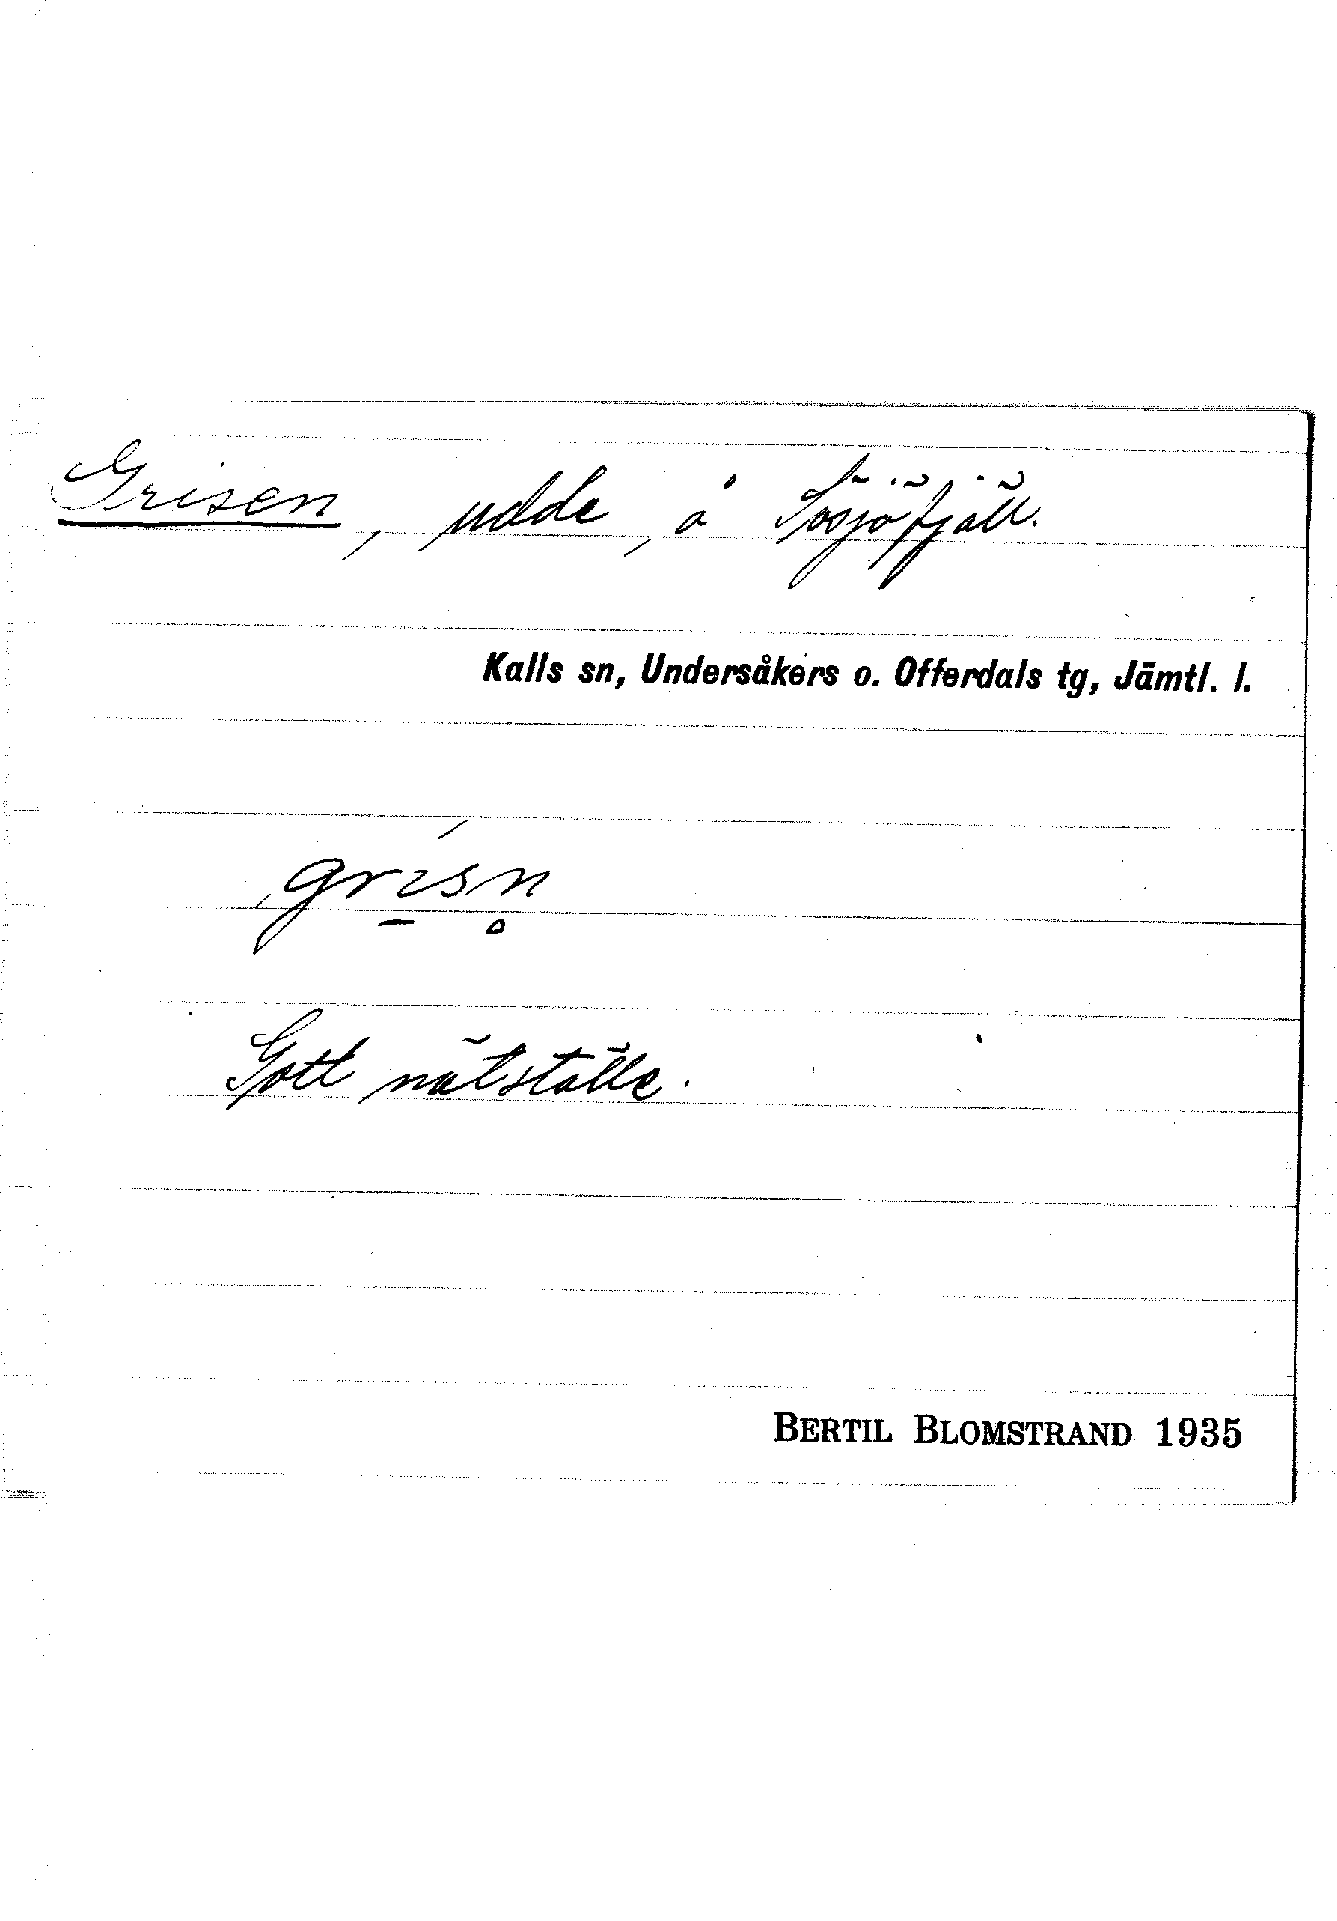 Grisen, udde, å Sösjöfjäll.
Kalls sn, Undersåkers o. Offerdals tg, Jämtl. l.
grı̱́sn̥
Gott nätställe.
BERTIL BLOMSTRAND 1935